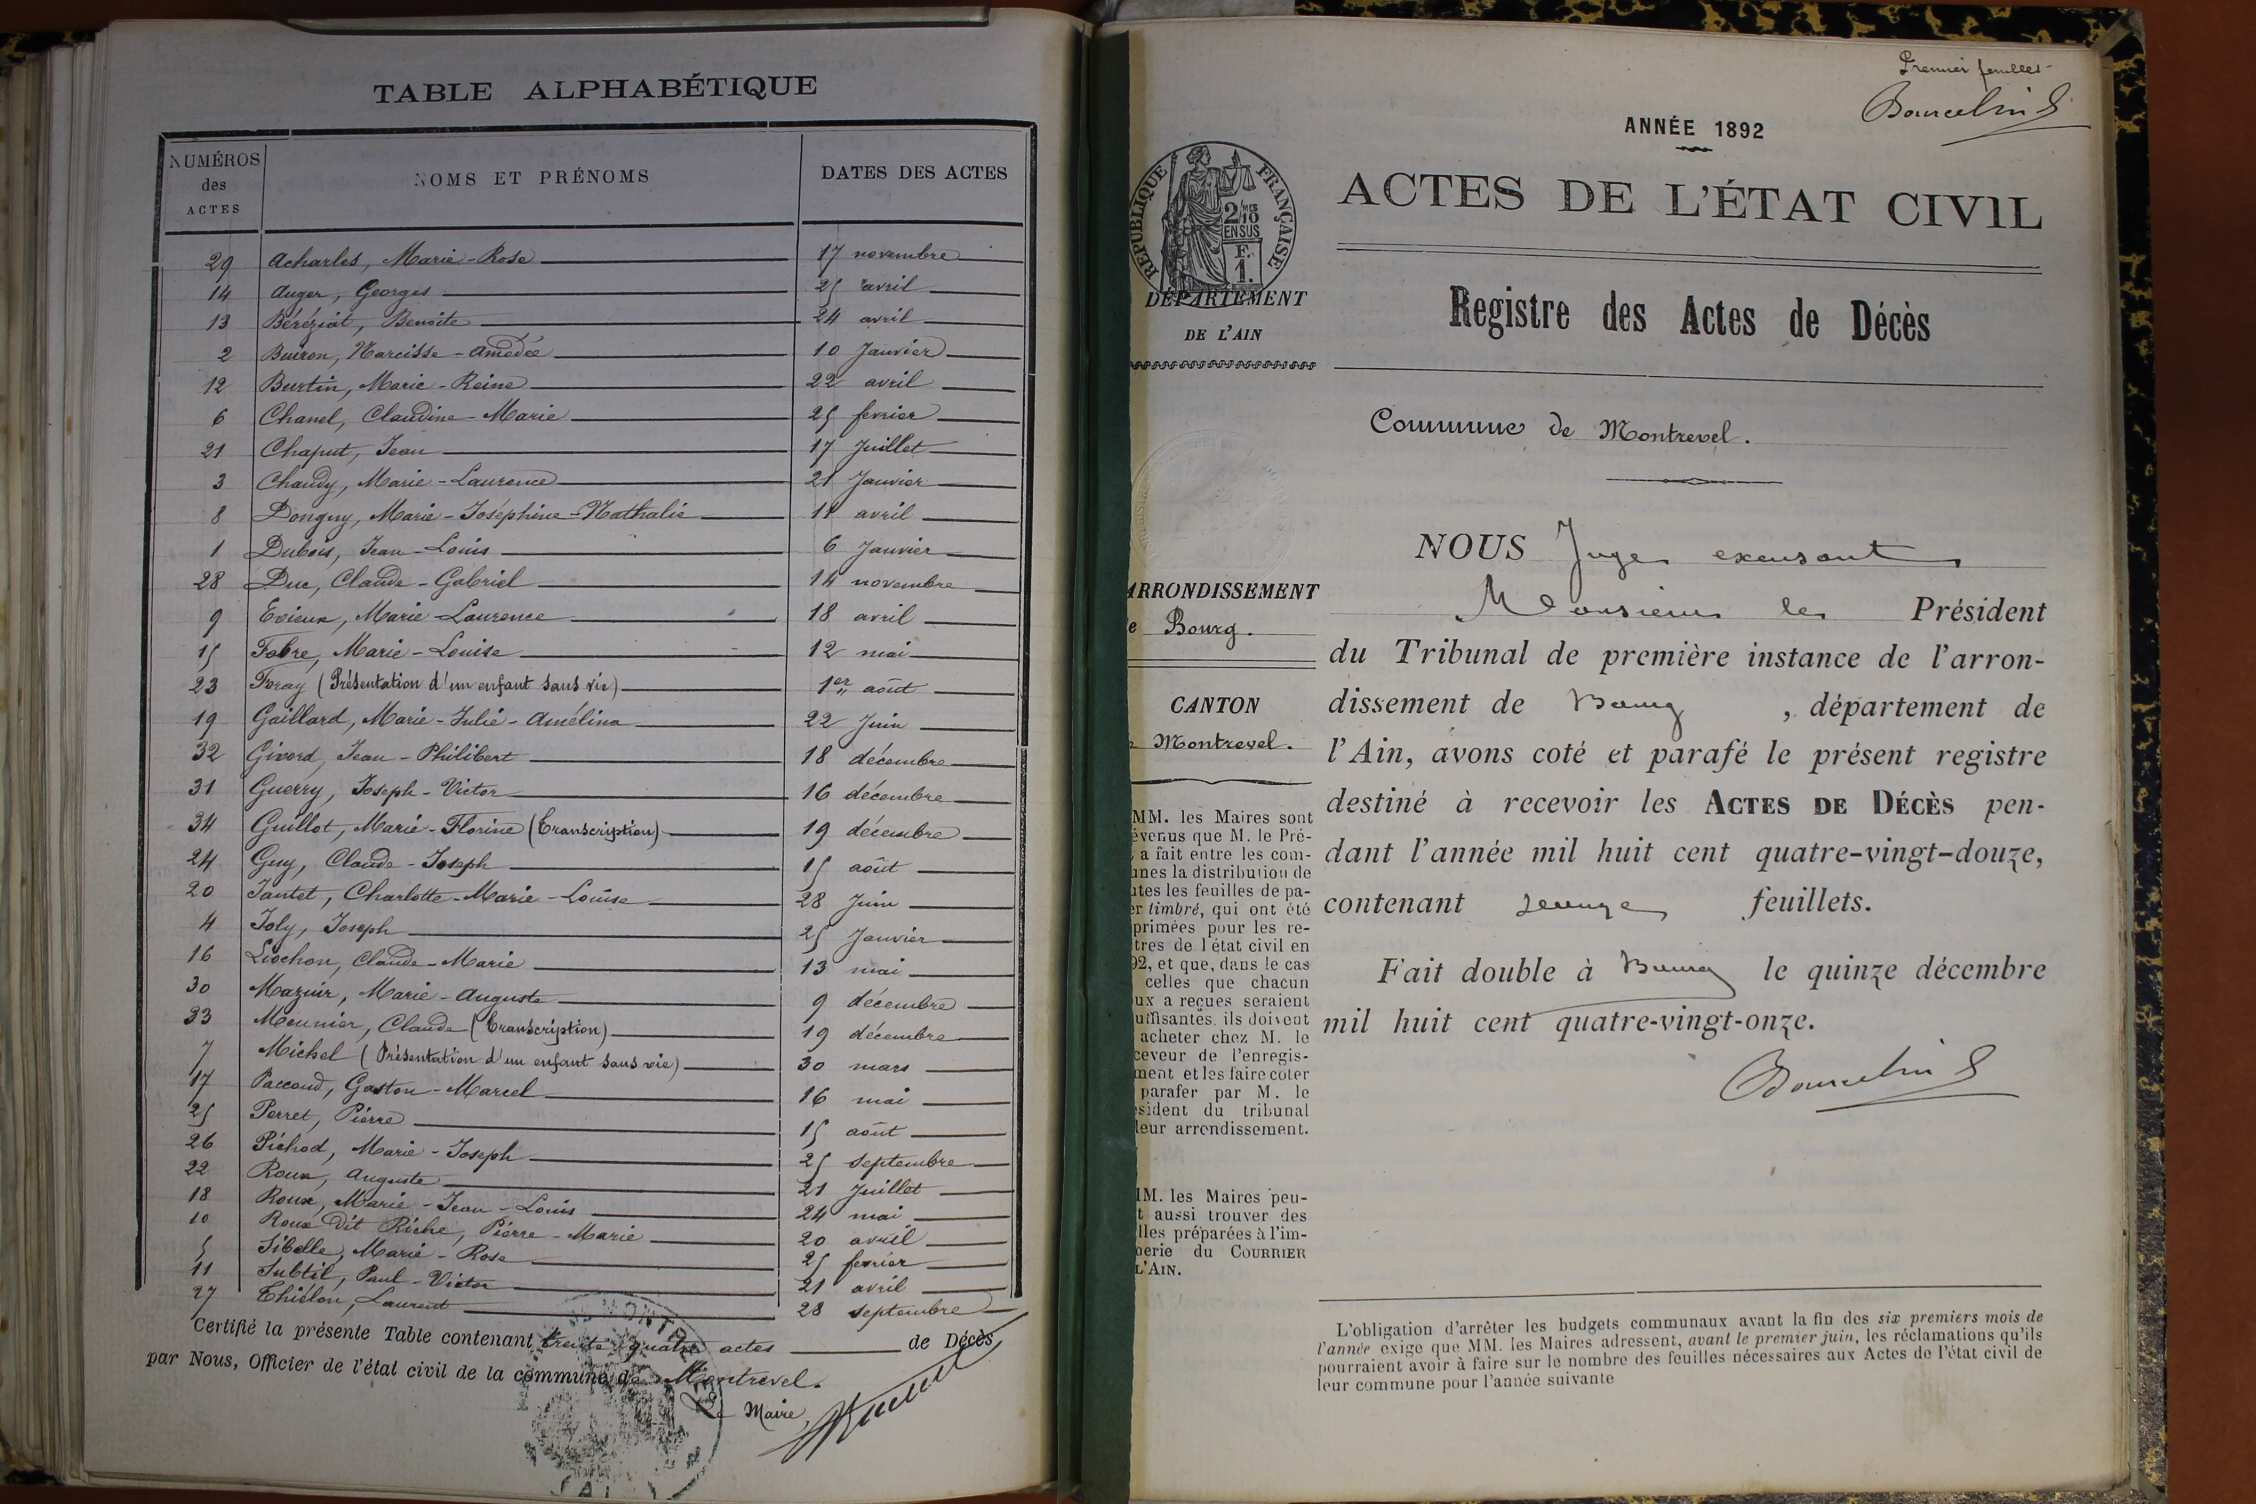 TABLE ALPHABÉTIQUE
NUMÉROS des ACTES
NOMS ET PRÉNOMS
DATES DES ACTES
29 Acharles, Marie-Rose 17 novembre
14 Auger, Georges 25 avril
13 Béréziat, Benoite 24 avril
2 Buiron, Narcisse-Amédée 10 Janvier
12 Burtin, Marie-Reine 22 avril
6 Chanel, Claudine-Marie 25 fevrier
21 Chaput, Jean 17 Juillet
3 Chaudy, Marie-Laurence 21 Janvier
8 Donguy, Marie-Joséphine-Nathalie 11 avril
1 Dubois, Jean-Louis 6 Janvier
28 Duc, Claude-Gabriel 14 novembre
9 Evieux, Marie-Laurence 18 avril
15 Fabre, Marie-Louise 12 mai
23 Foray (Présentation d'un enfant sans vie) 1er août
19 Gaillard, Marie-Julie-Amélina 22 Juin
32 Givord, Jean-Philibert 18 décembre
31 Guerry, Joseph-Victor 16 décembre
34 Guillot, Marie-Florine (Transcription) 19 décembre
24 Guy, Claude-Joseph 15 août
20 Jantet, Charlotte-Marie-Louise 28 Juin
4 Joly, Joseph 25 Janvier
16 Liochon, Claude-Marie 13 mai
30 Mazuir, Marie-Auguste 9 décembre
33 Meunier, Claude (Transcription) 19 décembre
7 Michel (Présentation d'un enfant sans vie) 30 mars
17 Paccoud, Gaston-Marcel 16 mai
25 Perret, Pierre 15 août
26 Pichod, Marie-Joseph 25 septembre
22 Roux, Auguste 21 Juillet
18 Roux, Marie-Jean-Louis 24 mai
10 Roux dit Riche, Pierre-Marie 20 avril
5 Sibelle, Marie-Rose 25 fevrier
11 Subtil, Paul-Victor 21 avril
27 Thiélon, Laurent 28 septembre
Certifié la présente Table contenant trente quatre actes de Décès
par Nous, Officier de l'état civil de la commune de Montrevel.
Le Maire,
Premier feuillet
Bourcelin
ANNÉE 1892
ACTES DE L'ÉTAT CIVIL
RÉPUBLIQUE FRANÇAISE
2/10 MES
EN SUS
F.
1.
DÉPARTEMENT
DE L'AIN
Registre des Actes de Décès
Commune de Montrevel.
NOUS Juge
ARRONDISSEMENT
e Bourg.
Monsieur le Président
du Tribunal de première instance de l'arron-
dissement de Bourg, département de
l'Ain, avons coté et parafé le présent registre
destiné à recevoir les ACTES DE DÉCÈS pen-
dant l'année mil huit cent quatre-vingt-douze,
contenant feuillets.
Fait double à Bourg le quinze décembre
mil huit cent quatre-vingt-onze.
Bourcelin
CANTON
Montrevel.
MM. les Maires sont
évenus que M. le Pré-
a fait entre les com-
unes la distribution de
utes les feuilles de pa-
er timbré, qui ont été
primées pour les re-
tres de l'état civil en
92, et que, dans le cas
celles que chacun
ux a reçues seraient
uffisantes, ils doivent
acheter chez M. le
ceveur de l'enregis-
ment et les faire coter
parafer par M. le
ésident du tribunal
leur arrondissement.
MM. les Maires peu-
t aussi trouver des
lles préparées à l'im-
merie du COURRIER
L'AIN.
L'obligation d'arrêter les budgets communaux avant la fin des six premiers mois de
l'année exige que MM. les Maires adressent, avant le premier juin, les réclamations qu'ils
pourraient avoir à faire sur le nombre des feuilles nécessaires aux Actes de l'état civil de
leur commune pour l'année suivante